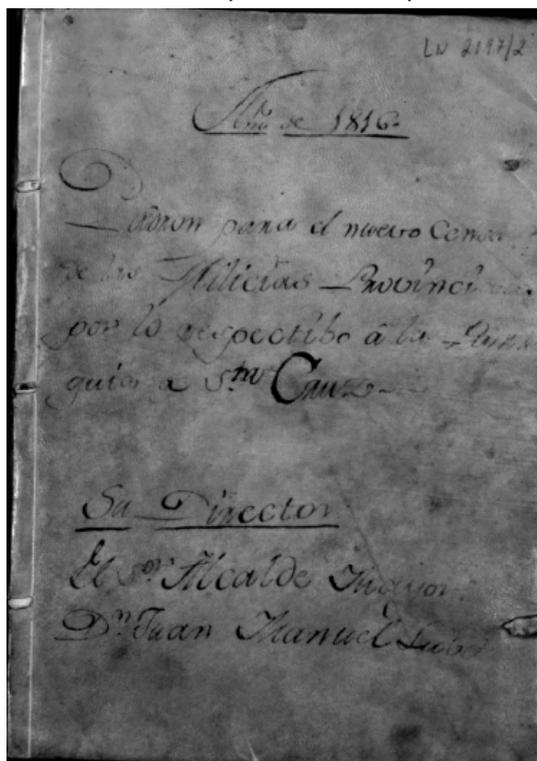 LN 2197/2
Año de 1816
Padron para el nuevo Censo
de las Milicias Provinci
por lo respectibo â la Parro
quia a Sta Cruz
Su Director
El Sor Alcalde Mayor
Dn Juan Manuel